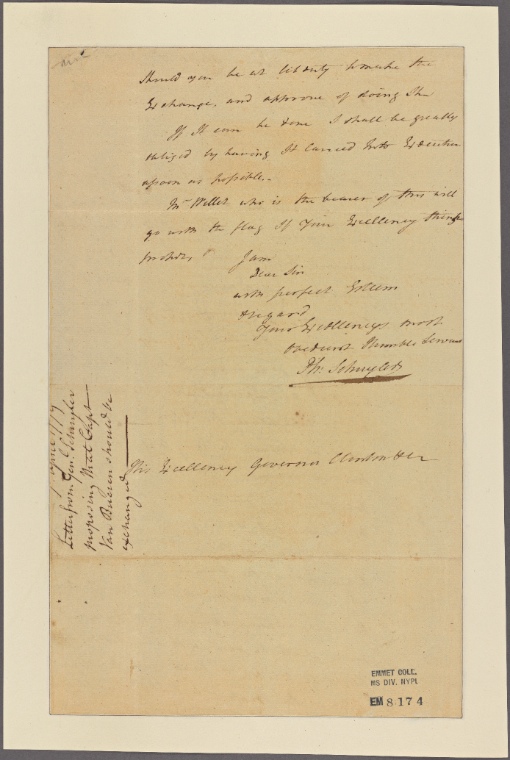 Should you be at liberty to make the
Exchange, and approve of doing
If It can be done I shall be greatly
obliged by having It carried Into Execution
as soon as possible.
Mr. Willet who is the bearer of this will
go with the flag If Your Excellency thinks
proper
I am
Dear Sir
with perfect Esteem
& regard
Your Excellency's most
Obedient Humble Servant
Ph: Schuyler
His Excellency Governor Clinton &c
April 1779
Letter from Genl. Schuyler
proposing that Capt
Van Buren should be
exchanged
EMMET COLL.
MS DIV. NYPL
EM 8174